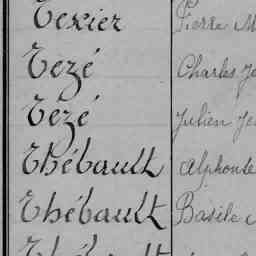 Texier Pierre M
Tezé Charles Je
Tezé Julien Je
Thébault Alphonse
Thébault Basile